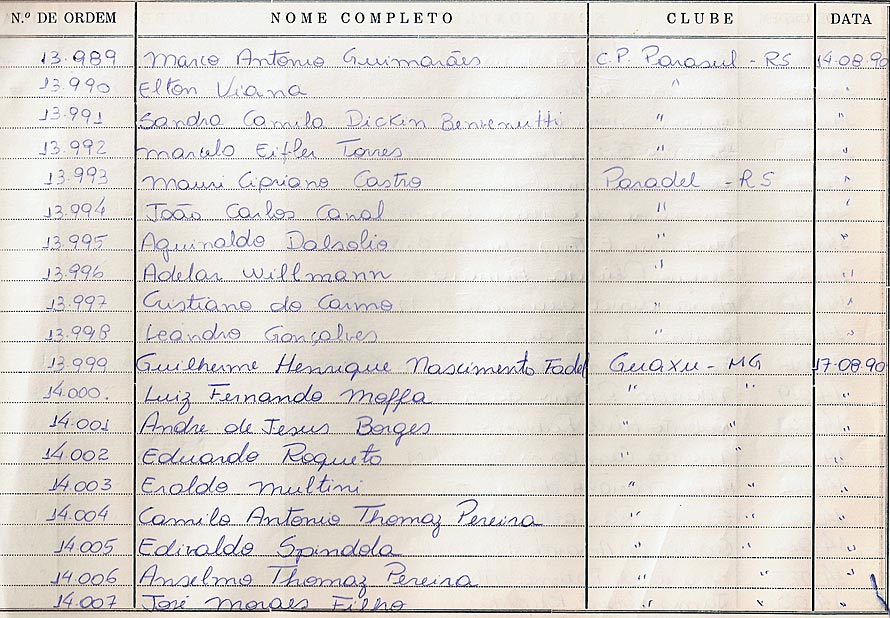 N.º DE ORDEM NOME COMPLETO CLUBE DATA
13.989 Marco Antonio Guimarães C.P. Parasul - RS 14.08.90
13.990 Elton Viana " "
13.991 Sandra Camila Dickin Benvenutti " "
13.992 Marcelo Eifler Torres " "
13.993 Mauri Cipriano Castro Paradel - RS "
13.994 João Carlos Canal " "
13.995 Aguinaldo Dalsolio " "
13.996 Adelar Willmann " "
13.997 Cristiano do Carmo " "
13.998 Leandro Gonçalves " "
13.999 Guilherme Henrique Nascimento Fadel Guaxu - MG 17.08.90
14.000. Luiz Fernando Moffa " " "
14.001 Andre de Jesus Borges " " "
14.002 Eduardo Roqueto " " "
14.003 Eraldo Multini " " "
14.004 Camilo Antonio Thomaz Pereira " " "
14.005 Edivaldo Spindola " " "
14.006 Anselmo Thomaz Pereira " " "
14.007 José Moraes Filho " " "